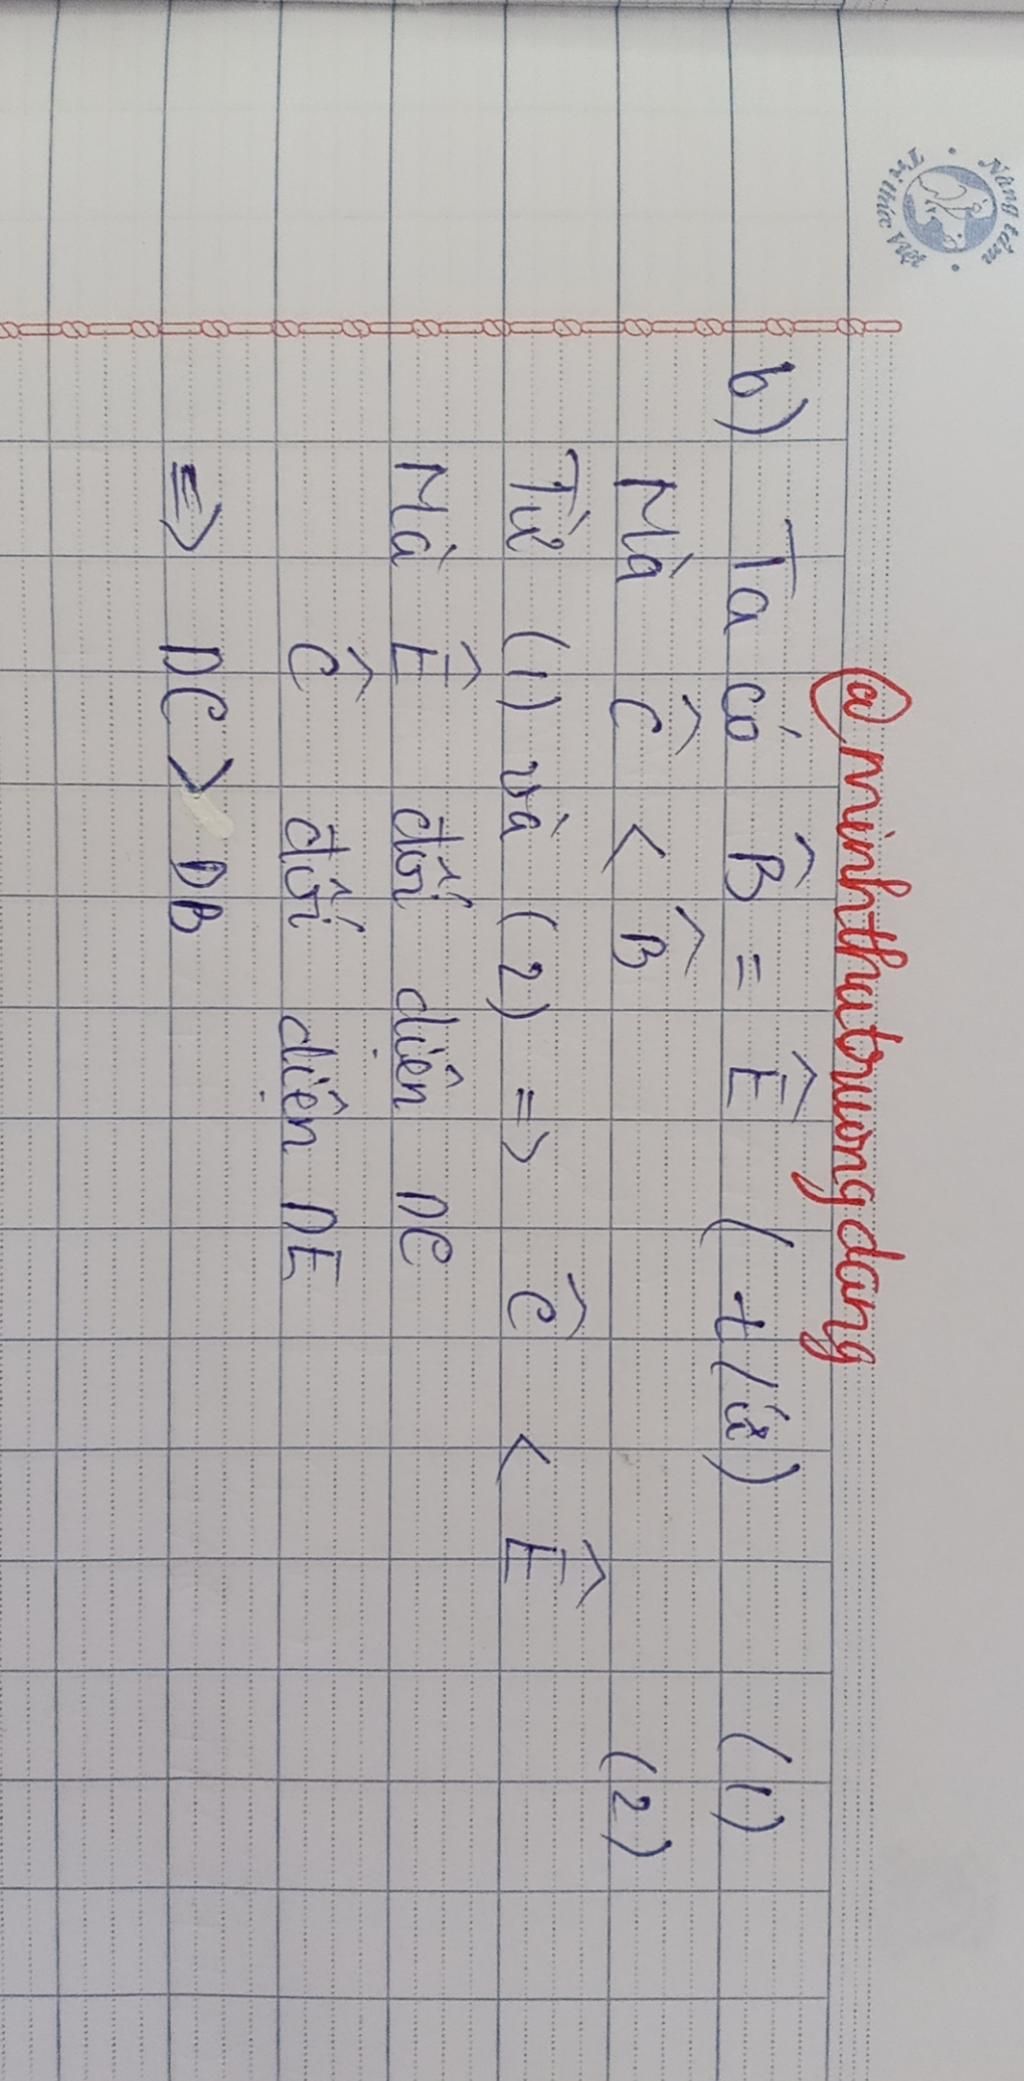 Nâng tầm
Tri thức Việt
@minhthutruongdang
b) Ta có B̂ = Ê ( t/ứ) (1)
Mà Ĉ < B̂ (2)
Từ (1) và (2) => Ĉ < Ê
Mà Ê đối diện DC
Ĉ đối diện DE
=> DC > DB